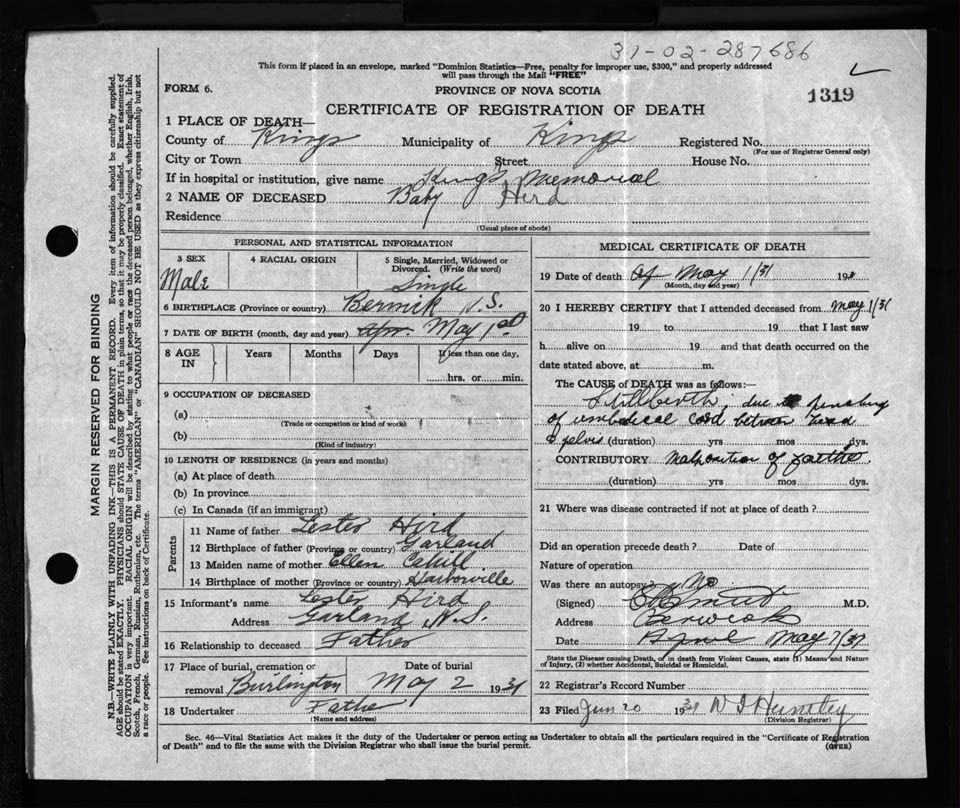 31-02-287686
This form if placed in an envelope, marked "Dominion Statistics—Free, penalty for improper use, $300," and properly addressed
will pass through the Mail "FREE"
FORM 6.
PROVINCE OF NOVA SCOTIA
1319
CERTIFICATE OF REGISTRATION OF DEATH
1 PLACE OF DEATH—
County of Kings Municipality of Kings Registered No.
(For use of Registrar General only)
City or Town Street House No.
If in hospital or institution, give name Kings Memorial
2 NAME OF DECEASED Baby Hird
Residence
(Usual place of abode)
PERSONAL AND STATISTICAL INFORMATION
3 SEX 4 RACIAL ORIGIN 5 Single, Married, Widowed or
Divorced. (Write the word)
Male Single
6 BIRTHPLACE (Province or country) Berwick N.S.
7 DATE OF BIRTH (month, day and year) Apr. May 1st
8 AGE
IN
Years Months Days If less than one day,
hrs. or min.
9 OCCUPATION OF DECEASED
(a)
(Trade or occupation or kind of work)
(b)
(Kind of industry)
10 LENGTH OF RESIDENCE (in years and months)
(a) At place of death
(b) In province
(c) In Canada (if an immigrant)
Parents
11 Name of father Lester Hird
12 Birthplace of father (Province or country) Garland
13 Maiden name of mother Ellen Cahill
14 Birthplace of mother (Province or country) Harborville
15 Informant's name Lester Hird
Address Garland N.S.
16 Relationship to deceased Father
17 Place of burial, cremation or Date of burial
removal Burlington May 2 1931
18 Undertaker Father
(Name and address)
MEDICAL CERTIFICATE OF DEATH
19 Date of death Ap May 1/31 193
(Month, day and year)
20 I HEREBY CERTIFY that I attended deceased from May 1/31
19 to 19 that I last saw
h alive on 19 and that death occurred on the
date stated above, at m.
The CAUSE of DEATH was as follows:—
Stillbirth due to pinching
of umbilical cord between head
& pelvis (duration) yrs mos dys.
CONTRIBUTORY Malposition of
(duration) yrs mos dys.
21 Where was disease contracted if not at place of death?
Did an operation precede death? Date of
Nature of operation
Was there an autopsy? No
(Signed) M.D.
Address Berwick
Date April May 7/31
State the Disease causing Death, or in death from Violent Causes, state (1) Means and Nature
of Injury, (2) whether Accidental, Suicidal or Homicidal.
22 Registrar's Record Number
23 Filed Jun 20 1931
(Division Registrar)
Sec. 46—Vital Statistics Act makes it the duty of the Undertaker or person acting as Undertaker to obtain all the particulars required in the "Certificate of Registration
of Death" and to file the same with the Division Registrar who shall issue the burial permit.
(OVER)
MARGIN RESERVED FOR BINDING
N.B.—WRITE PLAINLY WITH UNFADING INK—THIS IS A PERMANENT RECORD. Every item of information should be carefully supplied.
AGE should be stated EXACTLY. PHYSICIANS should STATE CAUSE OF DEATH in plain terms, so that it may be properly classified. Exact statement of
OCCUPATION is very important. RACIAL ORIGIN will be described by stating to what people or race the deceased person belonged, whether English, Irish,
Scotch, French, German, Russian, Ruthenian, etc. The terms "AMERICAN" or "CANADIAN" SHOULD NOT BE USED as they express citizenship but not
a race or people. See instructions on back of Certificate.